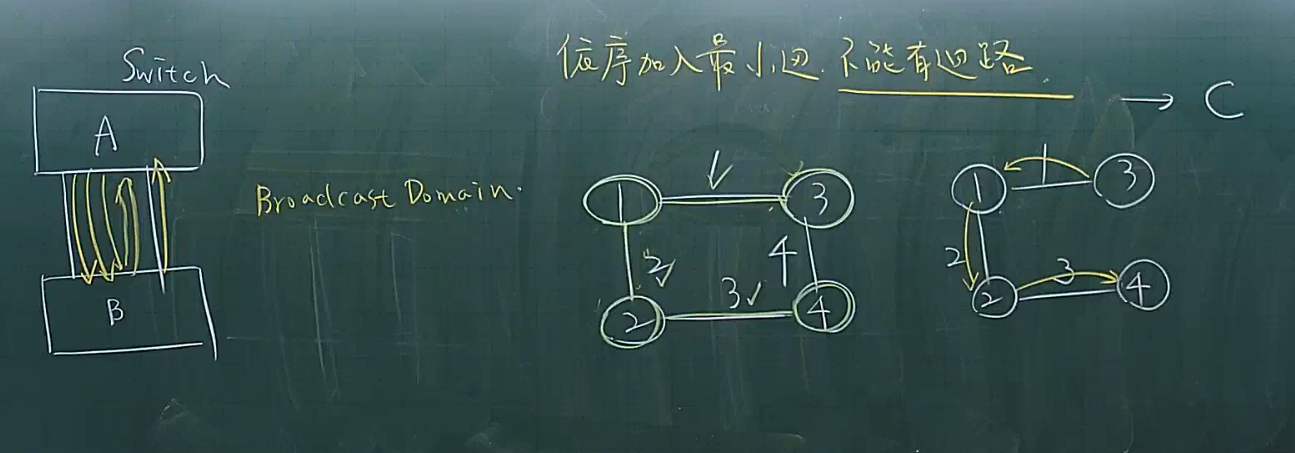 Switch
A
B
Broadcast Domain.
依序加入最小邊.不能有迴路
→ C
1 ✓ 3
2✓ 4
2 3✓ 4
1 1 3
2
2 3 4